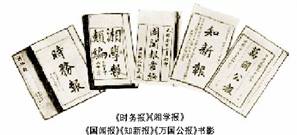 時務報
湘學報
類編
國聞報彙編
知新報
萬國公報
《时务报》《湘学报》
《国闻报》《知新报》《万国公报》书影